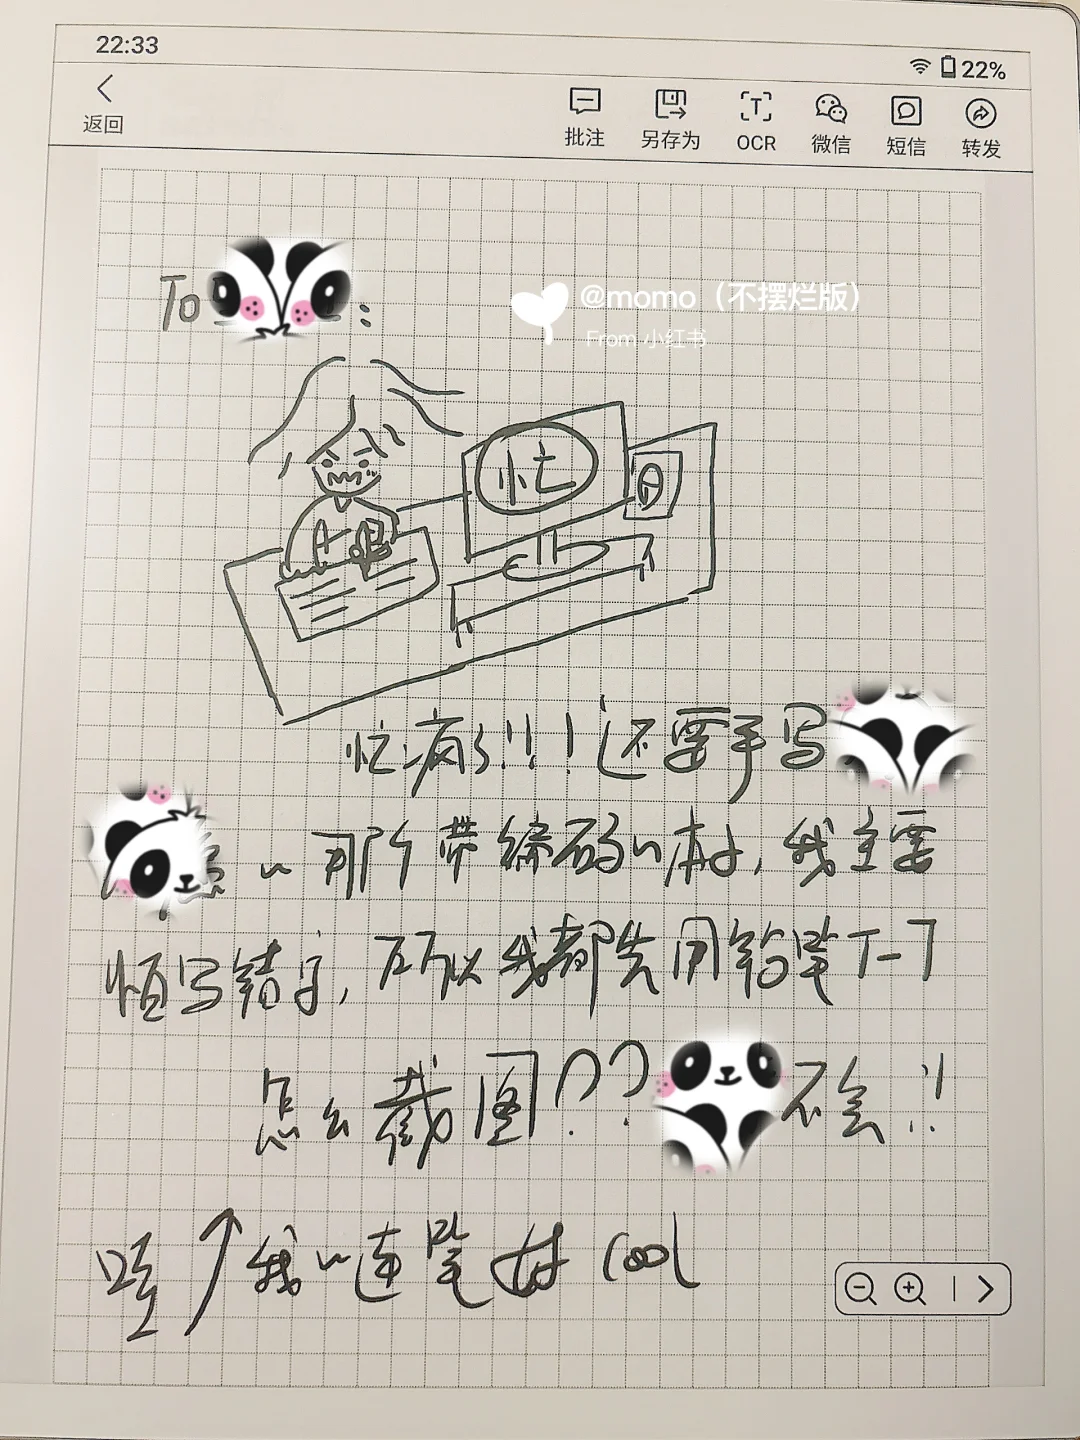 22:33
22%
返回
批注 另存为 OCR 微信 短信 转发
To :
@momo（不摆烂版）
From 小红书
忙
忙疯了!!!还要手写
那个带编码的本子,我主要
怕写错字,所以我都先用铅笔下一下
怎么截图??不会!!
哇 我的连笔好cool